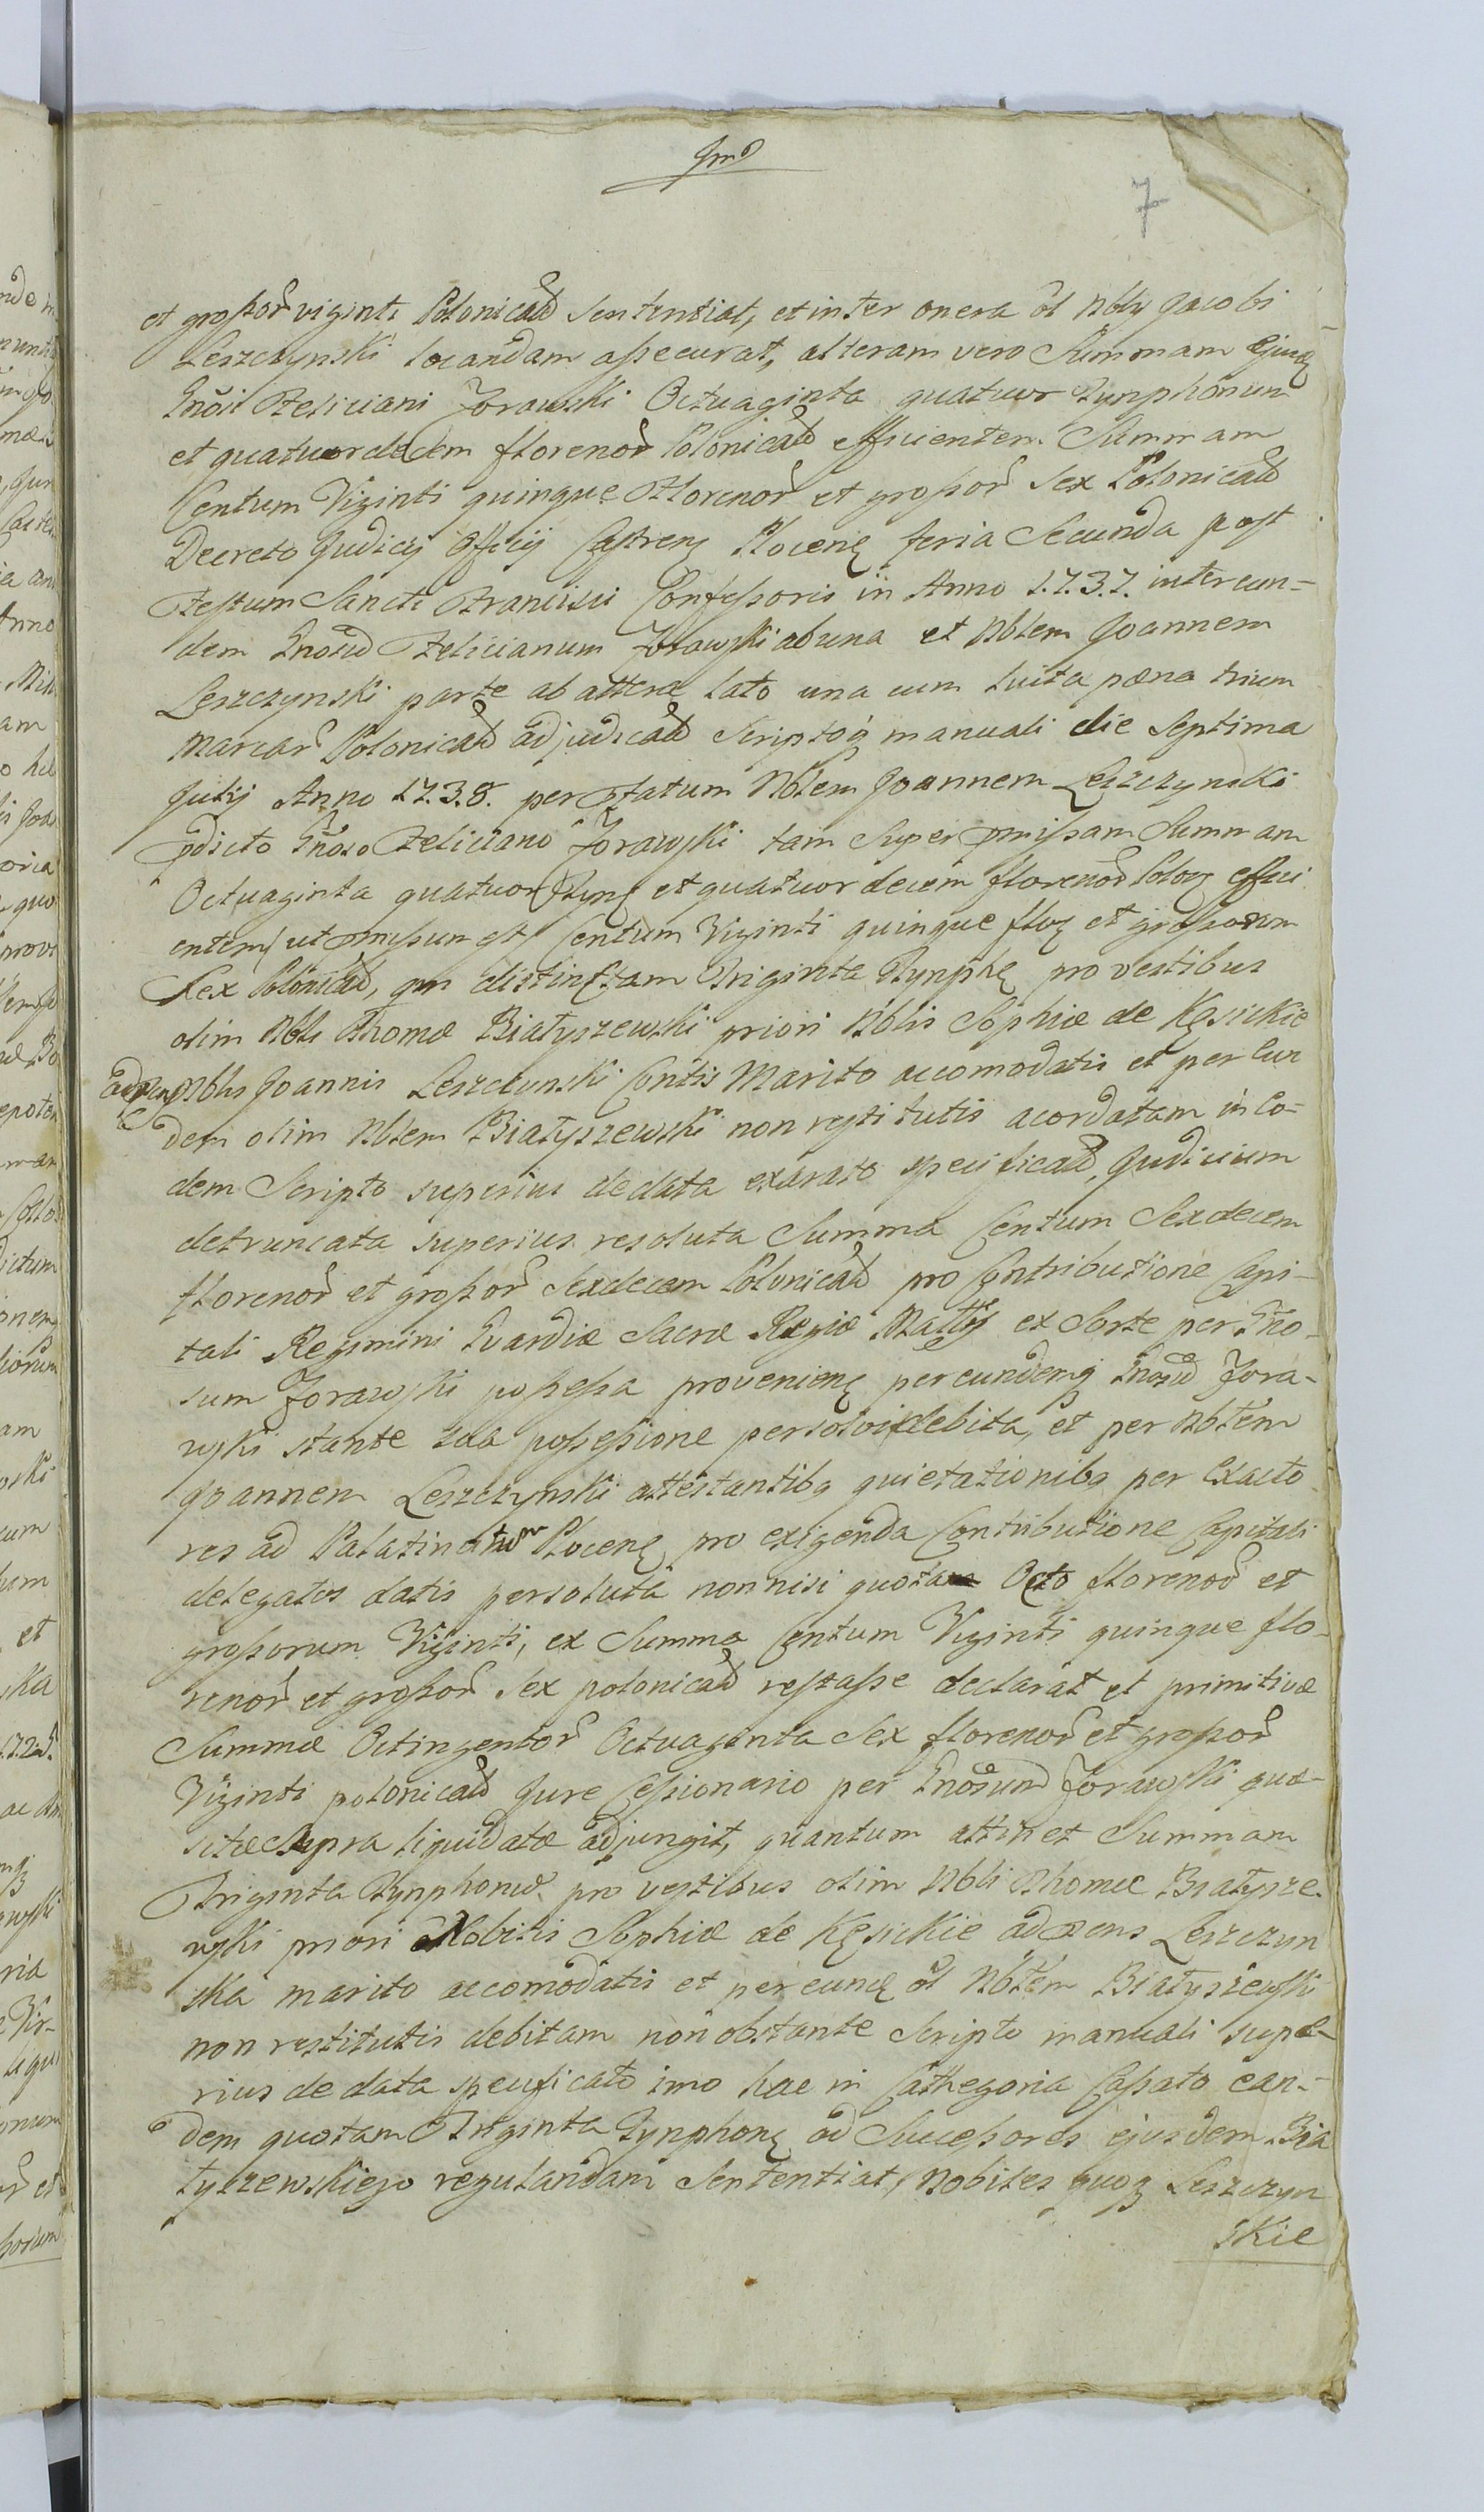 7
et grossor viginti Polonicał sententiat, et inter onera ol Nblis Jacobi
Leszczynski locandam assecurat, alteram vero Summam ejusq
Gnosi Feliciani Zorawski Octuaginta quatuor Tynphonum
et quatuordecem florenor Polonicał efficientem Summam
Centum Viginti quinque Florenor et grossor Sex Polonicał
Decreto Judicij Officij Castren Plocen feria Secunda post
Festum Sancti Francisci Confessoris in Anno 1.7.3.7. inter eun-
dem Gnosum Felicianum Zorawski ab una et Nblem Joannem
Leszczynski parte ab altera lato una cum luita pæna trium
marcar Polonicał adjudicał Scriptoq manuali die Septima
Julij Anno 17.3.8. per Statum Nblem Joannem Leszczynski
pdicto Gnoso Feliciano Zorawski tam Super pmissam Summam
Octuaginta quatuor Tynp et quatuor decem florenor Polon effici
entem (ut pmissum est) Centum Viginti quinque flor et grossorum
Sex Polonicał, qm distinctam Triginta Tynpho pro vestibus
olim Nbli Thomæ Białyszewski priori Nblis Sophiæ de Kęsickie
ad pns Nblis Joannis Leszczynski Contis Marito accomodatis et per Eun
dem olim Nblem Białyszewski non restitutis acordatam in Eo-
dem Scripto superius de data exarato specificał, Judicium
detruncata superius resoluta Summa Centum Sexdecem
florenor et grossor Sexdecem Polonicał pro Contributione Capi-
tali Regimini Gvardiæ Sacræ Regiæ Mattis ex Sorte per Gno-
sum Zorawski possessa provenien per eundemq Gnosum Zora-
wski stante sua possessione persolvi debita, et per Nblem
Joannem Leszczynski attestantibq quietationibq per Exacto-
res ad Palatinatum Plocen pro exigenda Contributione Capitali
delegatos datis persoluta nonnisi quotam Octo florenor et
grossorum Viginti, ex Summa Centum Viginti quinque flo-
renor et grossor Sex polonicał restasse declarat et primitivæ
Summæ Octingentor Octuaginta Sex florenor et grossor
Viginti polonicał Jure Cessionario per Gnosum Zorawski quæ-
sitæ Supra liquidatæ adjungit, quantum attinet Summam
Triginta Tynphonum pro vestibus olim Nbli Thomæ Białysze-
wski priori Nobilis Sophiæ de Kęsickie ad præns Leszczyn
ska marito accomodatis et per eund ol Nblem Białyszewski
non restitutis debitam non obstante Scripto manuali supe-
rius de data specificato imo hac in Cathegoria Cassato ean-
dem quotam Triginta Tynphon ad Successores ejusdem Bia
łyszewskiego regulandam Sententiat, Nobiles quoq Leszczyn
skie